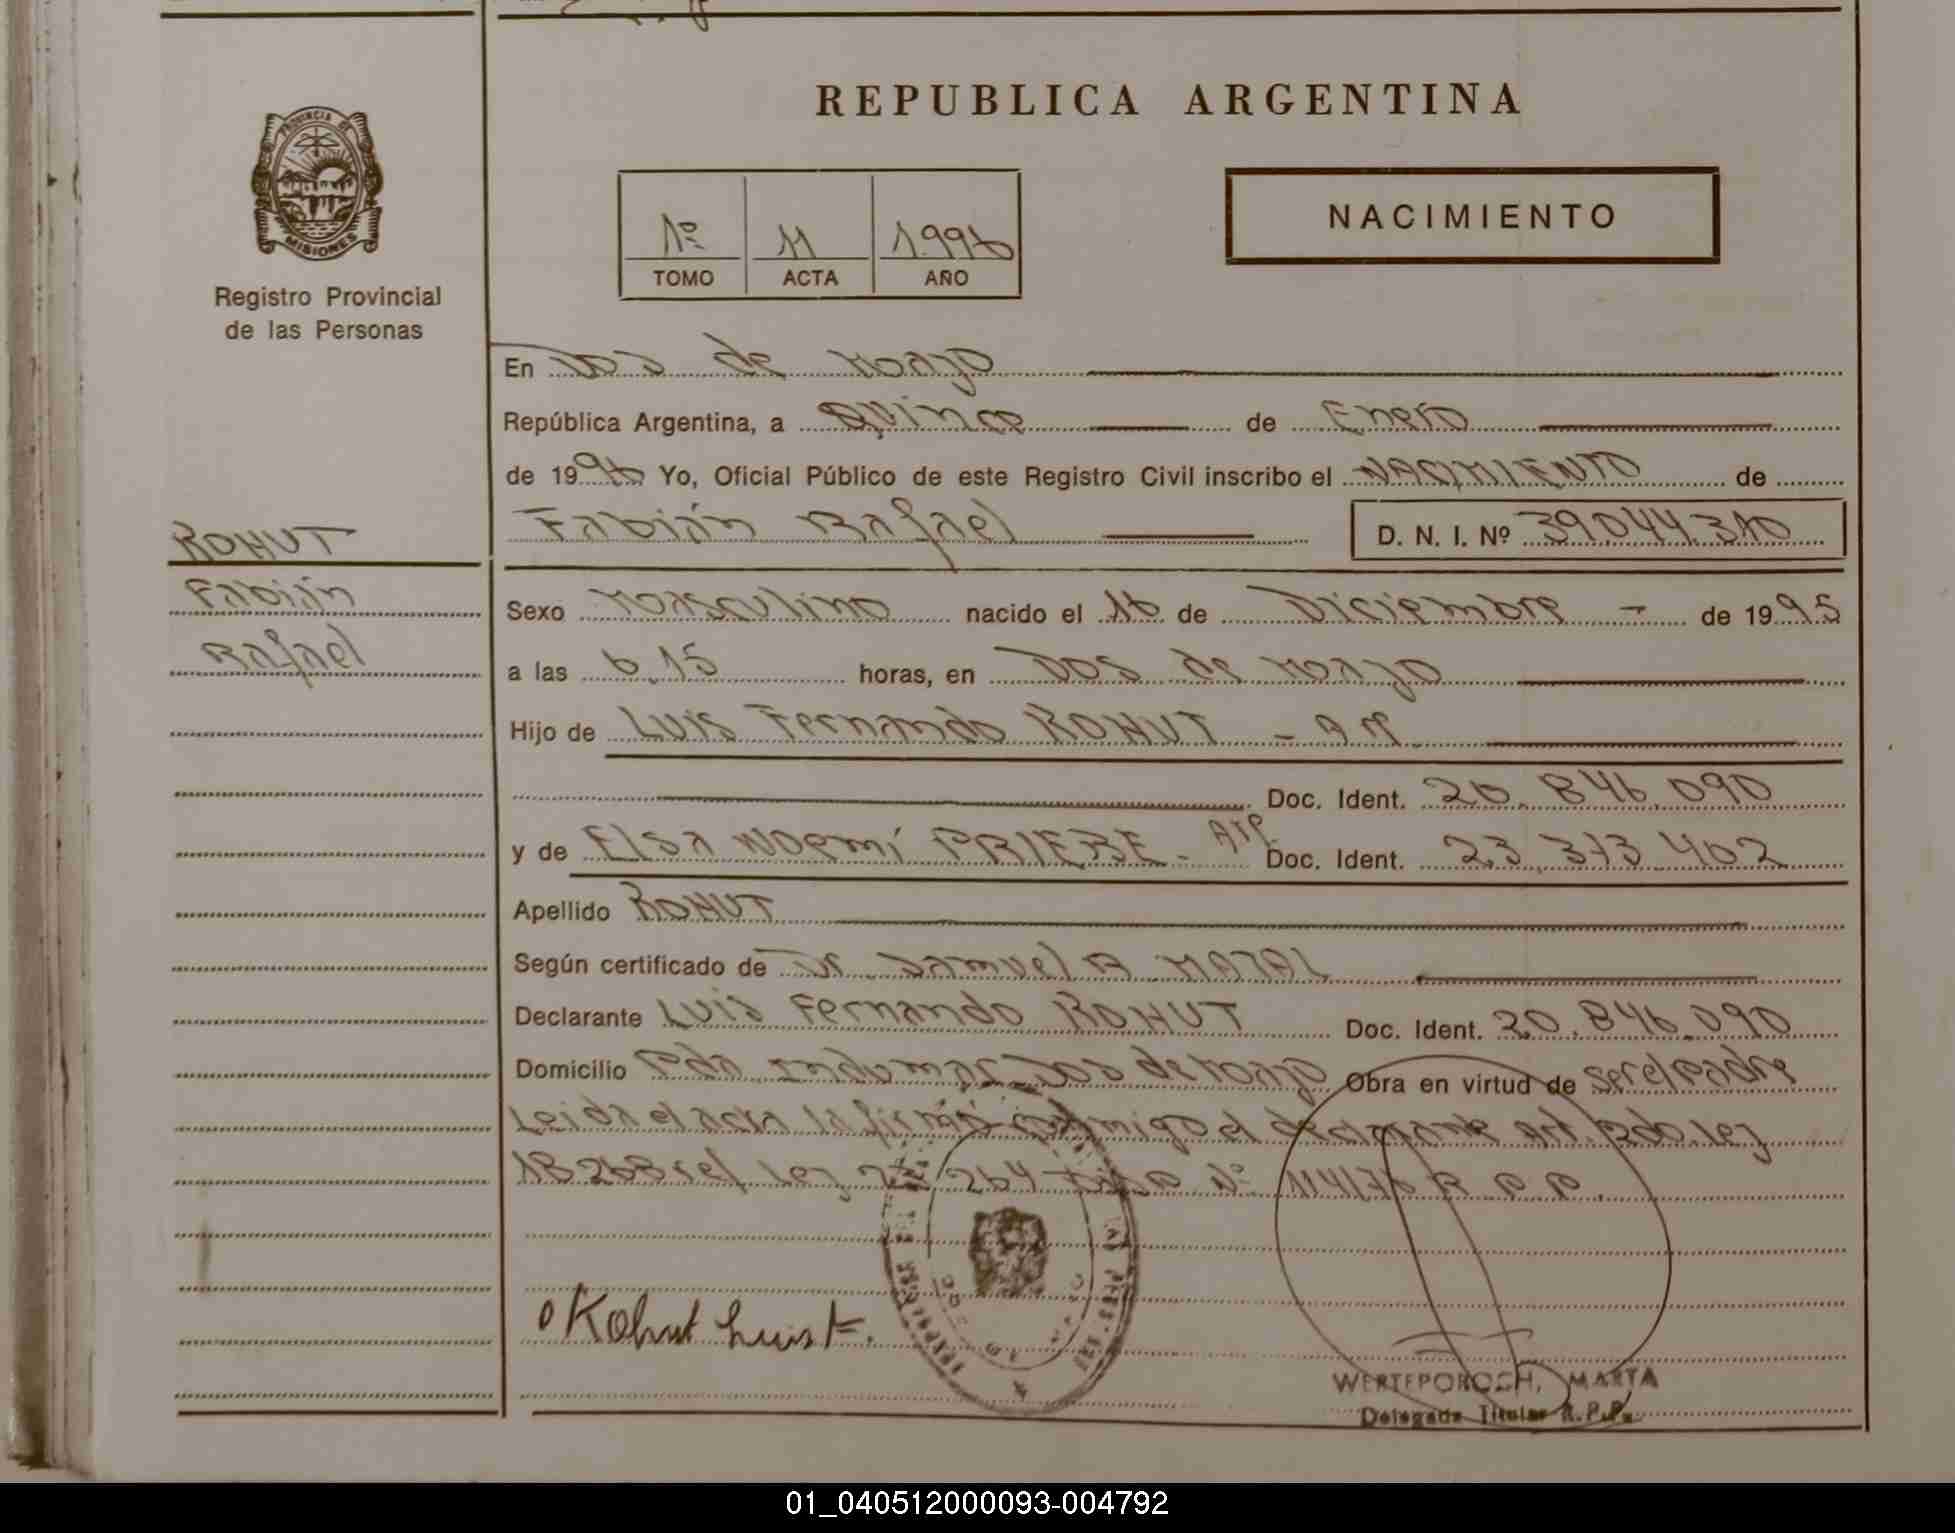 REPUBLICA ARGENTINA
PROVINCIA DE
MISIONES
Registro Provincial
de las Personas
1º 11 1.996
TOMO ACTA AÑO
NACIMIENTO
En Dos de Mayo
República Argentina, a Quince de Enero
de 1996 Yo, Oficial Público de este Registro Civil inscribo el NACIMIENTO de
Fabián Rafael D. N. I. Nº 39.044.310
ROHUT
Fabián
Rafael
Sexo Masculino nacido el 16 de Diciembre - de 1995
a las 6,15 horas, en Dos de Mayo
Hijo de LUIS Fernando ROHUT - Arg.
Doc. Ident. 20.846.090
y de Elsa Noemí PRIEBE - Arg. Doc. Ident. 23.373.402
Apellido ROHUT
Según certificado de Dr Samuel A
Declarante LUIS Fernando ROHUT Doc. Ident. 20.846.090
Domicilio Pdo Dos de Mayo Obra en virtud de ser el padre
Leida el acta la firmó conmigo el declarante Ley
18268 ref Ley Nº 114/76 R P P.
Kohut Luis F.
WERTEPOROCH, MARTA
Delegada Titular R.P.P.
01_040512000093-004792